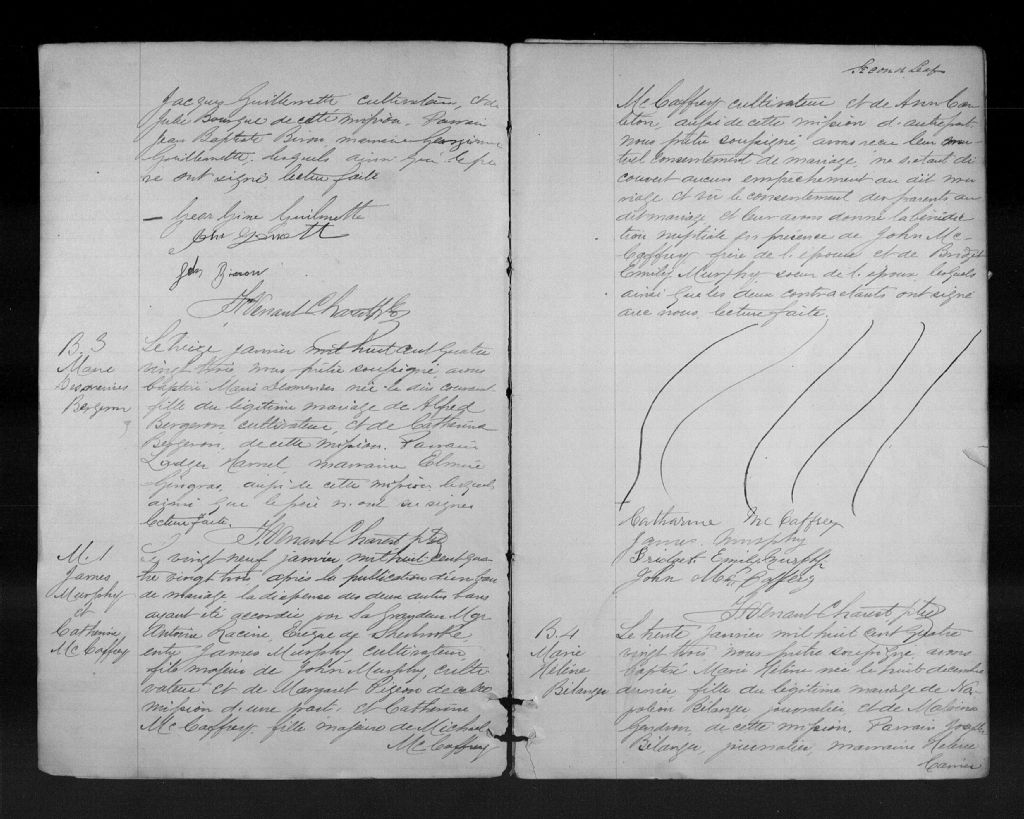 Jacques Guillemette cultivateur, et de
Julie Bourque de cette mission. Parrain
Jean Baptiste Biron marraine Georgianna
Guillemette. lesquels ainsi que le pè
re ont signé lecture faite
— Georgine Guilmette
Jos Biron
F. H. Venant Charest Ptre
B. 3
Marie
Desneiges
Bergeron
Le treize janvier mil huit cent quatre
vingt trois, nous prêtre soussigné, avons
baptisé Marie Desneiges née le dix courant
fille du légitime mariage de Alfred
Bergeron cultivateur, et de Catherine
Bergeron, de cette mission. Parrain
Lodger Hamel, marraine Elmire
Gingras, aussi de cette mission lesquels
ainsi que le père n'ont su signer
lecture faite.
F. H. Venant Charest ptre
M. 1
James
Murphy
et
Catherine
McCaffrey
Le vingt neuf janvier mil huit cent qua
tre vingt trois après la publication d'un ban
de mariage la dispense des deux autres bans
ayant été accordée par Sa Grandeur Mgr
Antoine Racine, Evêque de Sherbrooke,
entre James Murphy cultivateur
fils majeur de John Murphy, culti
vateur et de Margaret Pigeon de cette
mission d'une part, et Catherine
McCaffrey, fille majeure de Michael
McCaffrey
Second Leaf
McCaffrey cultivateur et de Ann Car
leton, aussi de cette mission d'autre part.
Nous prêtre soussigné avons reçu leur mu-
tuel consentement de mariage, ne s'étant dé
couvert aucun empêchement au dit ma
riage et vu le consentement des parents au
dit mariage et leur avons donné la bénédic
tion nuptiale en présence de John Mc-
Caffrey frère de l'épouse et de Bridget
Emily Murphy soeur de l'époux lesquels
ainsi que les deux contractants ont signé
avec nous. lecture faite.
Catharine McCaffrey
James Murphy
Bridget Emily Murphy
John McCaffrey
F. H. Venant Charest ptre
B. 4
Marie
Helène
Bélanger
Le trente janvier mil huit cent quatre
vingt trois nous prêtre soussigné avons
baptisé Marie Helène née le huit décembre
dernier, fille du légitime mariage de Na
poléon Bélanger journalier et de
Gendron, de cette mission. Parrain Joseph
Bélanger, journalier, marraine Helène
Carrier